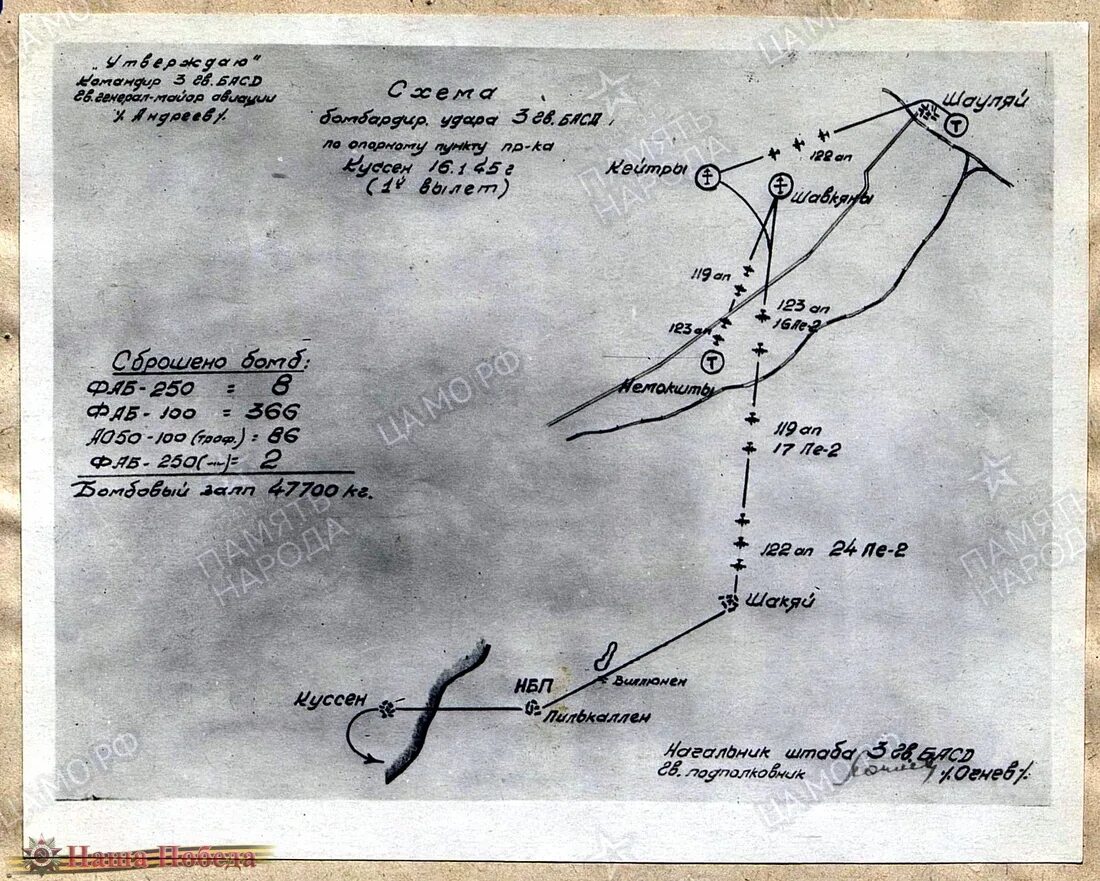 „Утверждаю“
Командир 3 гв. БАСД
гв. генерал-майор авиации
/. Андреев/.
Схема
бомбардир. удара 3 гв. БАСД
по опорному пункту пр-ка
Куссен 16.1.45 г
(1й вылет)
Шауляй
Т
122 ап
Кейтры
Шавкяны
119 ап
123 ап
16 Пе-2
123 ап
Т
Немокшты
Сброшено бомб:
ФАБ-250 = 8
ФАБ-100 = 366
АО50-100 (троф.) = 86
ФАБ-250 (-"-) = 2
Бомбовый залп 47700 кг.
119 ап
17 Пе-2
122 ап 24 Пе-2
Шакяй
Виллюнен
НБП
Куссен
Пилькаллен
Начальник штаба 3 гв. БАСД
гв. подполковник /. Огнев/.
ЦАМО РФ
ПАМЯТЬ
НАРОДА
Наша Победа